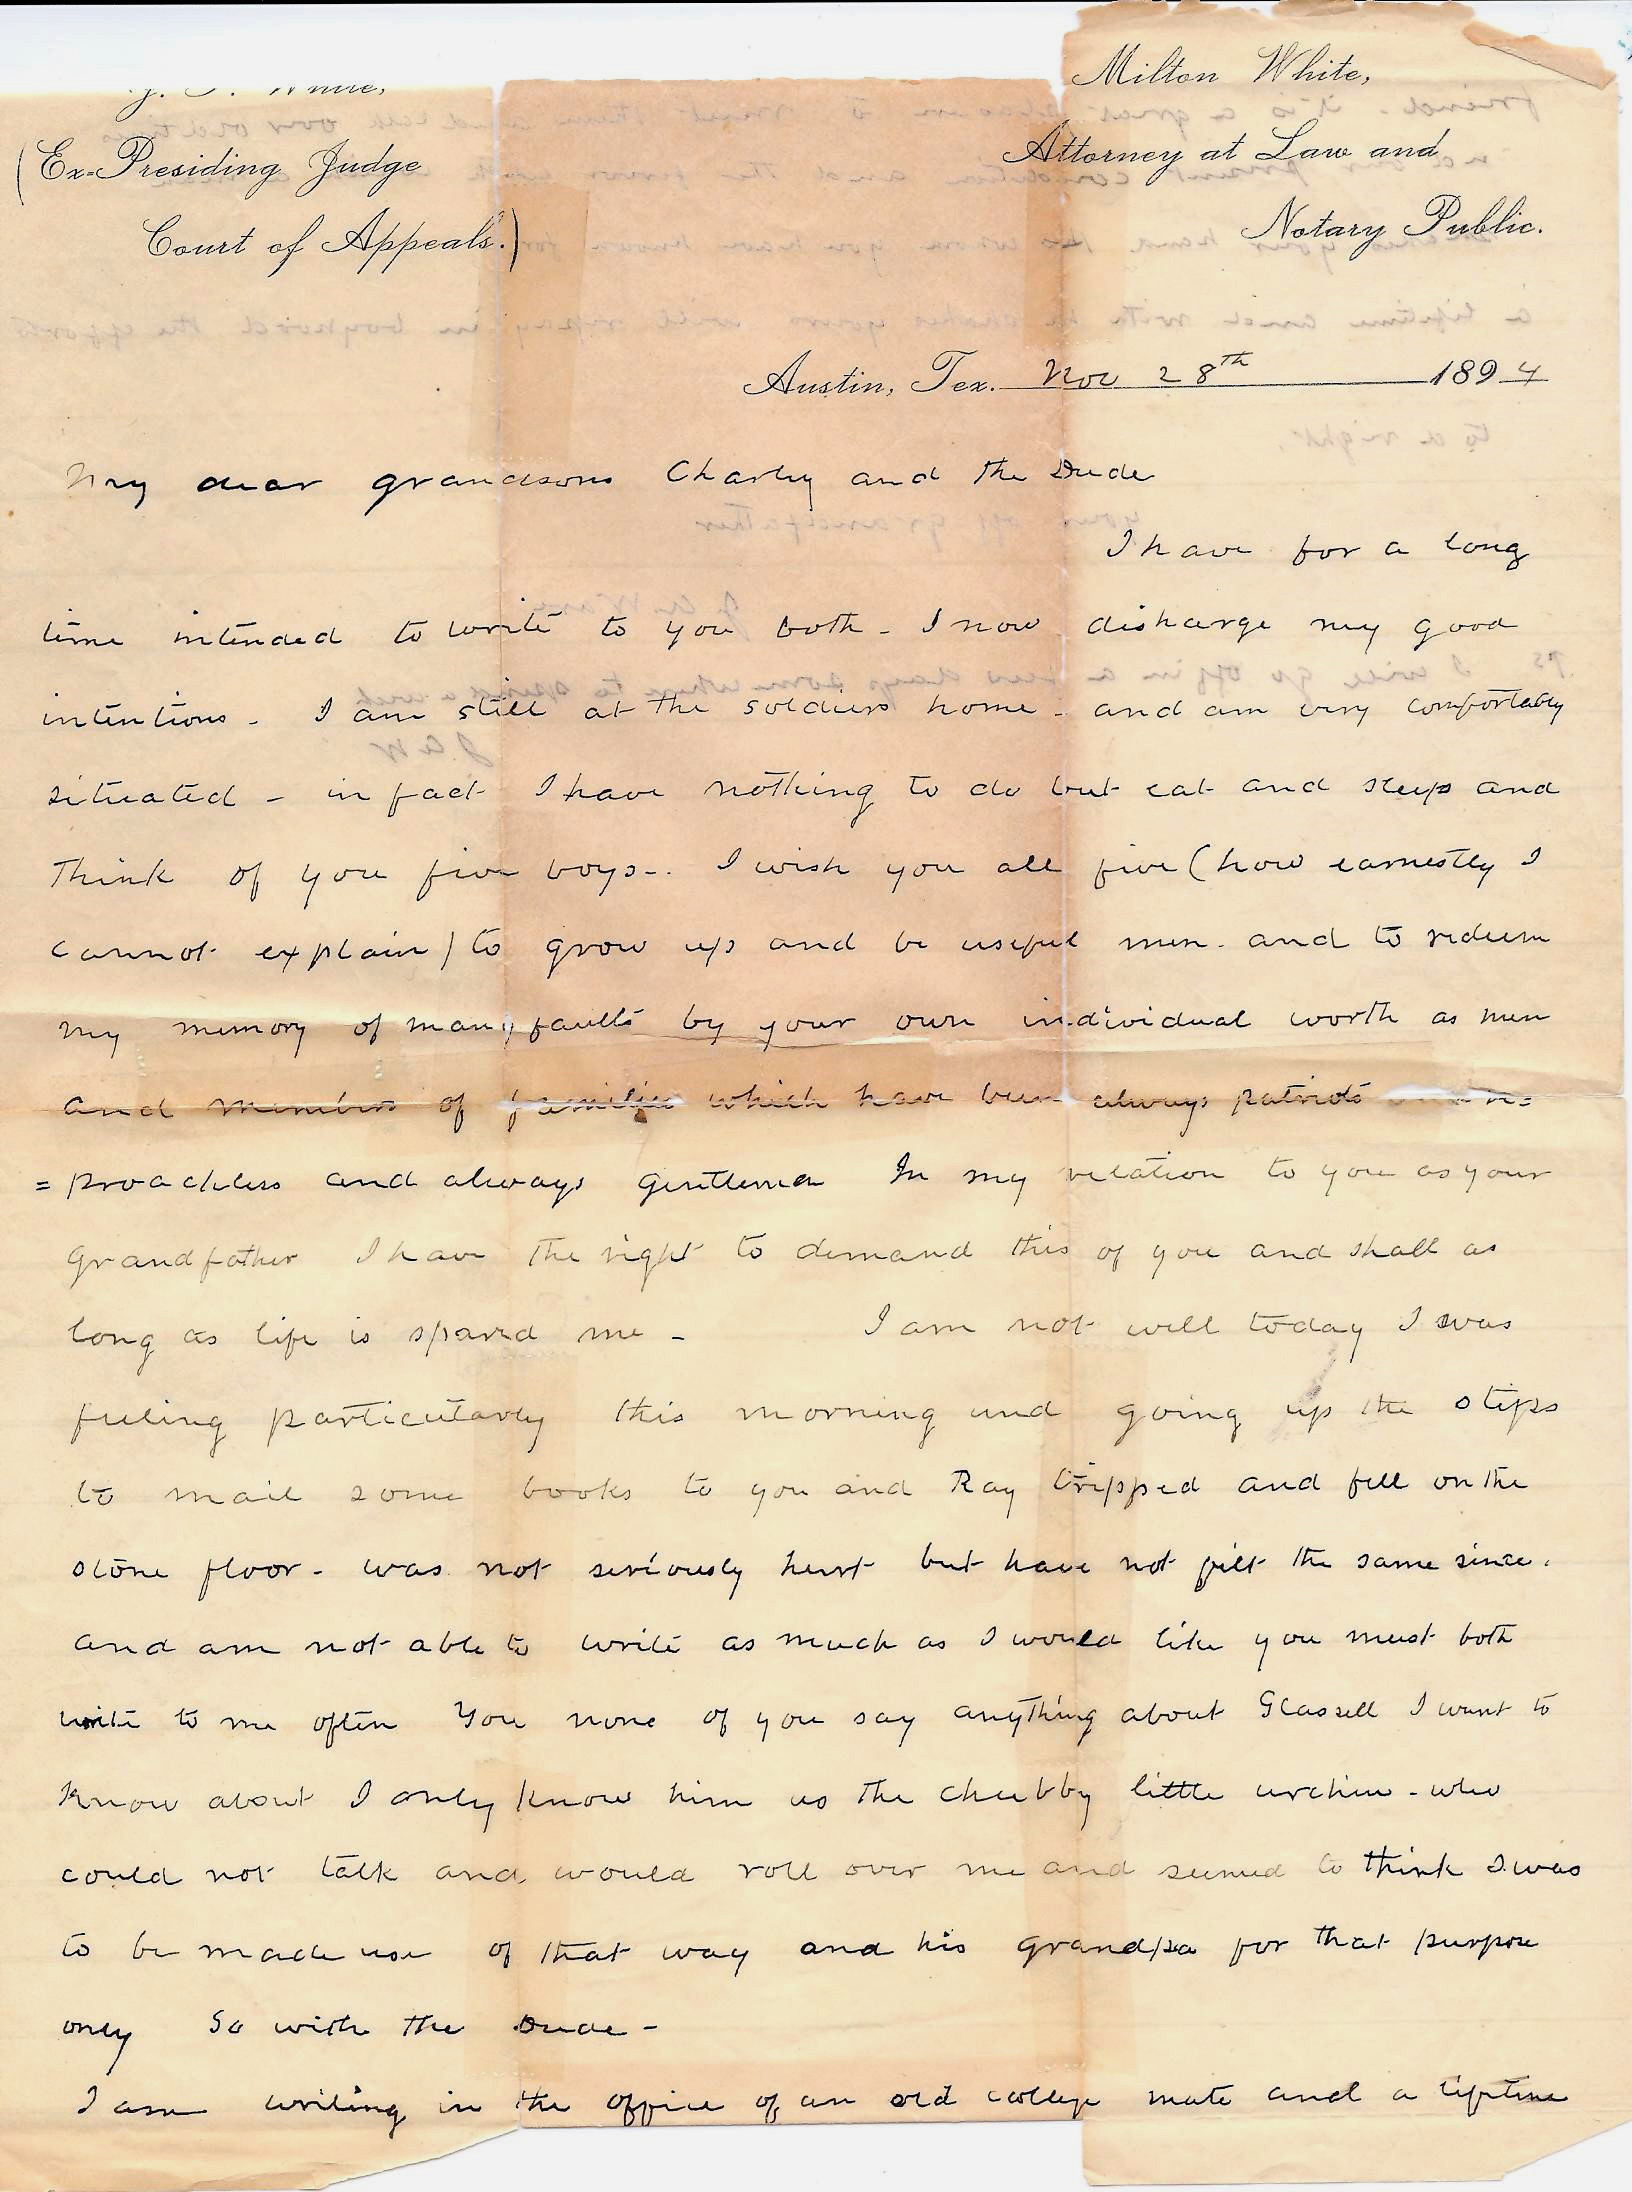 White,
(Ex-Presiding Judge
Court of Appeals.)
Milton White,
Attorney at Law and
Notary Public.
Austin, Tex. Nov 28th 1894
My dear grandsons Charley and the Dude
I have for a long
time intended to write to you both - I now discharge my good
intentions - I am still at the soldiers home - and am very comfortably
situated - in fact I have nothing to do but eat and sleep and
think of you five boys -. I wish you all five (how earnestly I
cannot explain) to grow up and be useful men. and to redeem
my memory of many faults by your own individual worth as men
and members of families which have been always patriots
=proachless and always gentlemen In my relation to you as your
grandfather I have the right to demand this of you and shall as
long as life is spared me - I am not well today I was
feeling particularly this morning and going up the steps
to mail some books to you and Ray tripped and fell on the
stone floor - was not seriously hurt but have not felt the same since.
and am not able to write as much as I would like you must both
write to me often You none of you say anything about Glassell I want to
know about I only know him as the chubby little urchin - who
could not talk and would roll over me and seemed to think I was
to be made use of that way and his grandpa for that purpose
only So with the Dude -
I am writing in the office of an old college mate and a lifetime